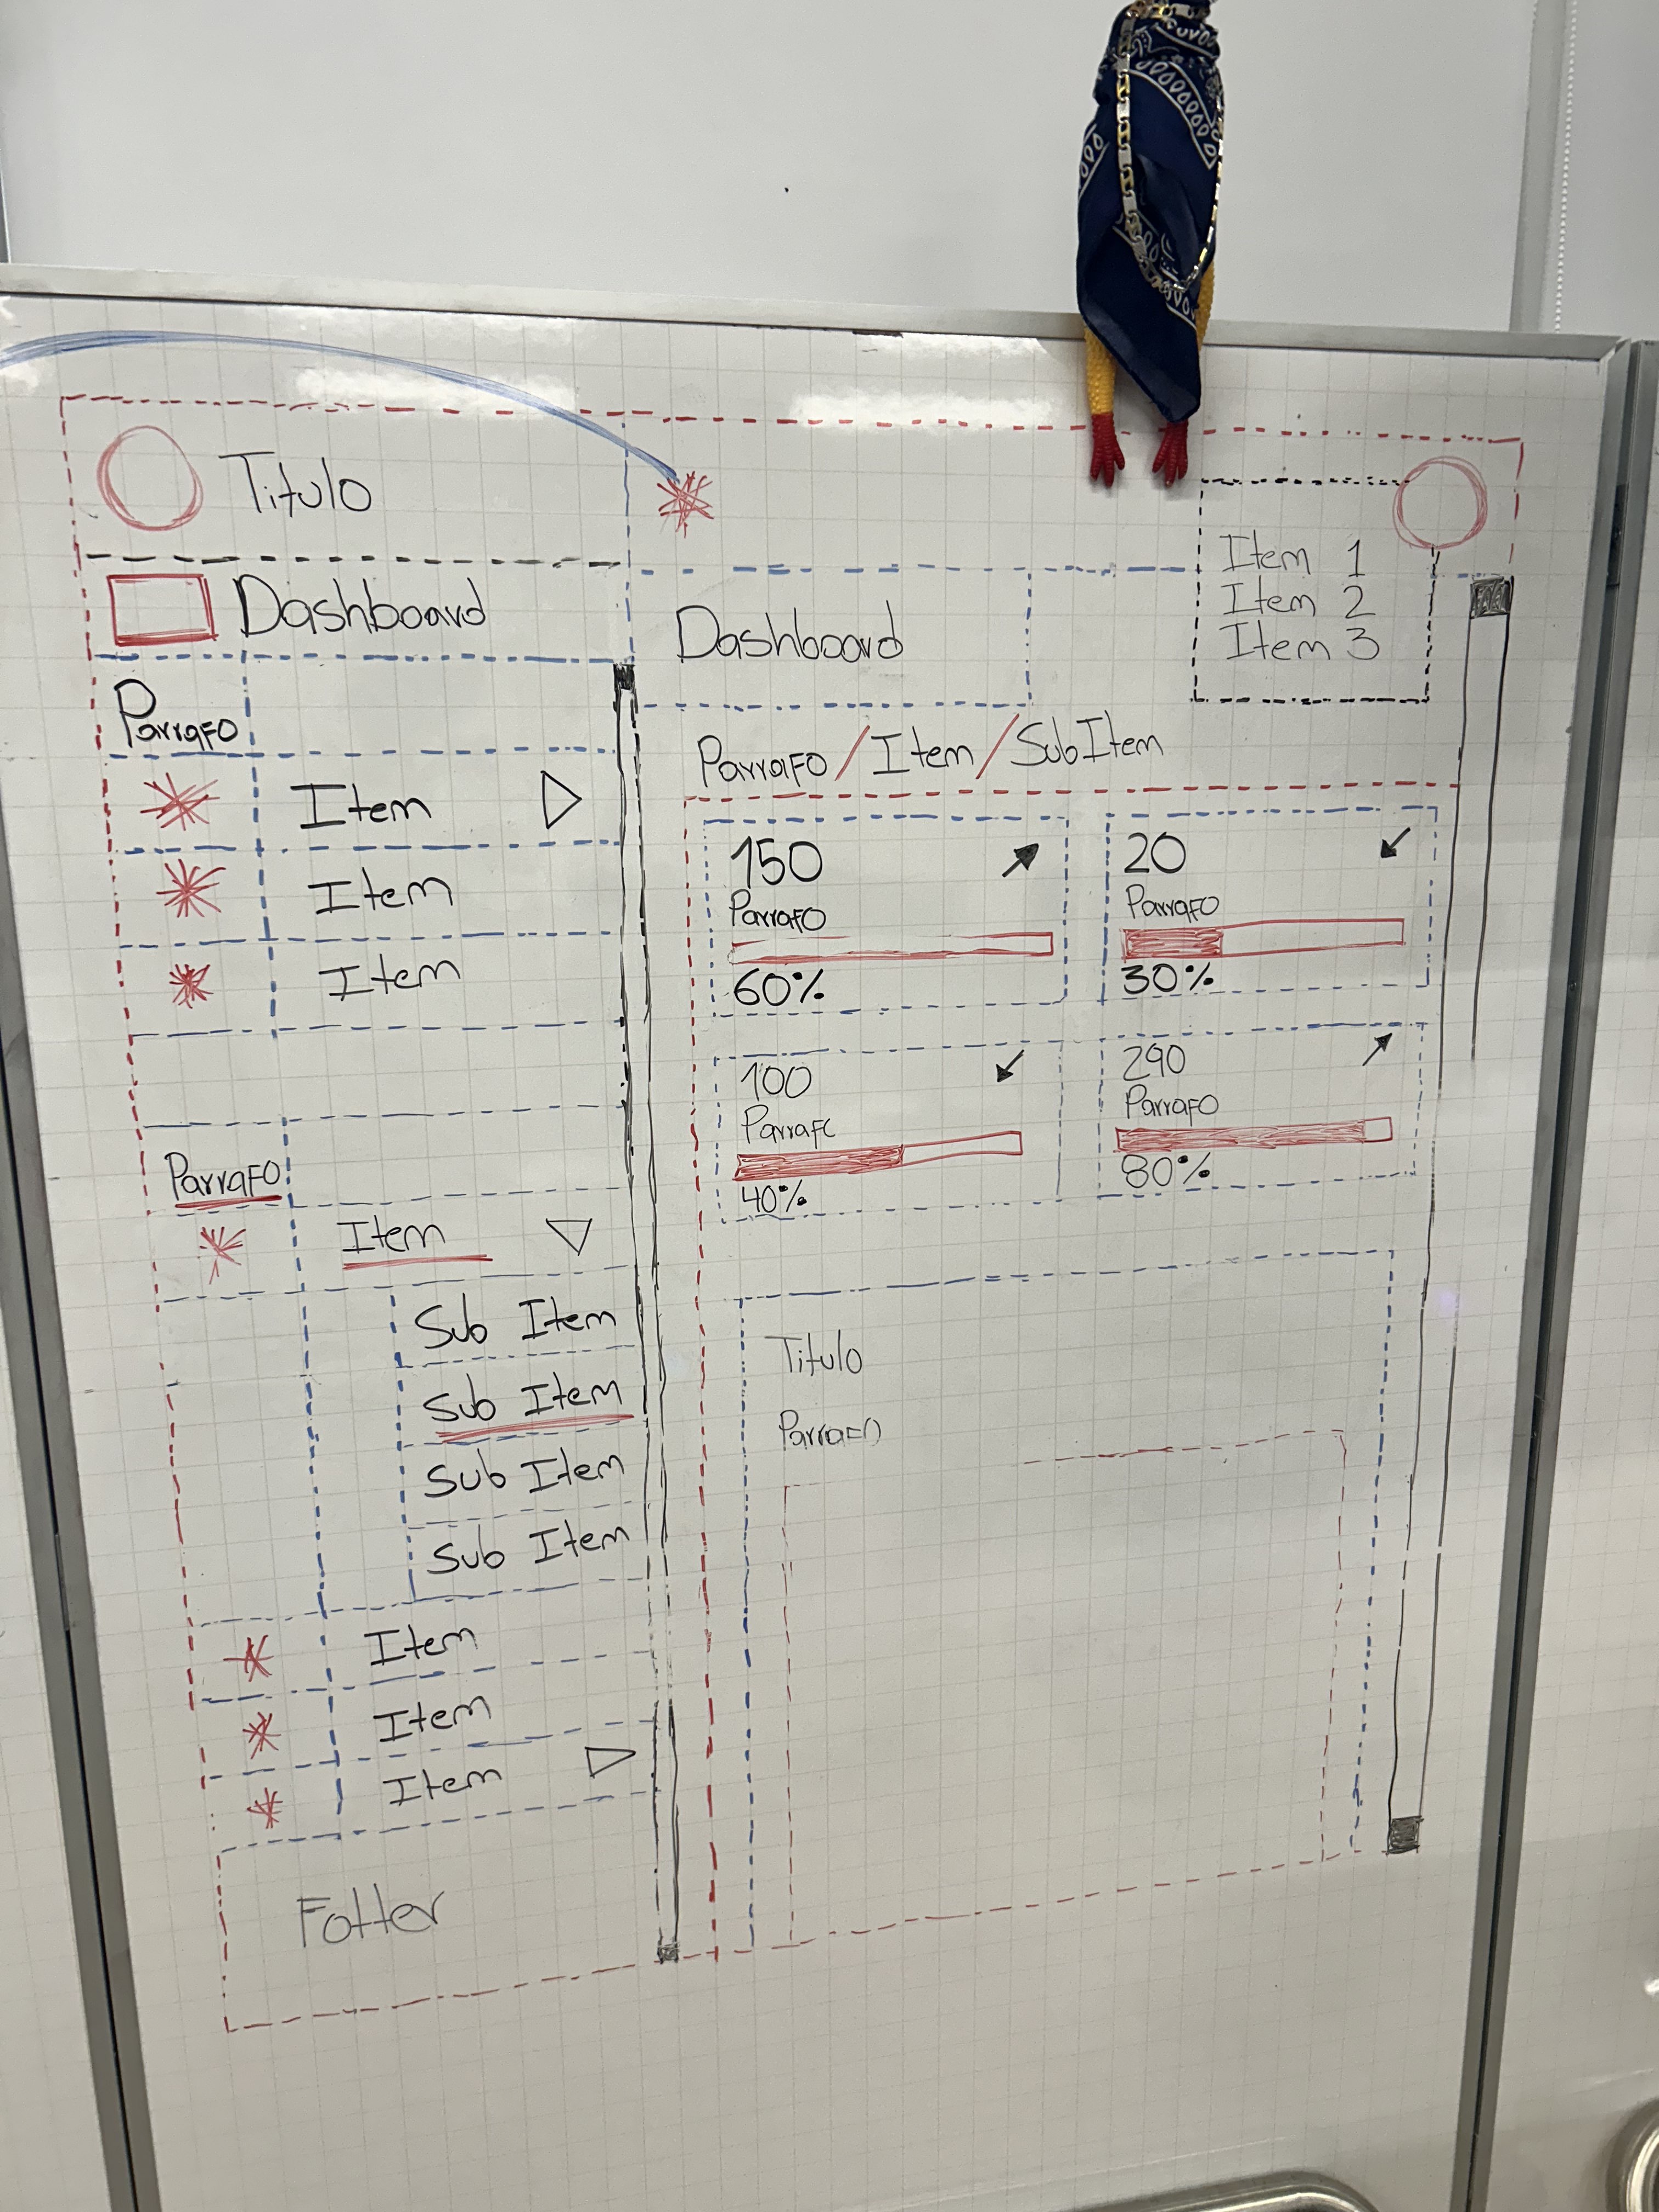 Titulo
Dashboard
Parrafo
Item
Item
Item
Parrafo
Item
Sub Item
Sub Item
Sub Item
Sub Item
Item
Item
Item
Fotter
Item 1
Item 2
Item 3
Dashboard
Parrafo / Item / SubItem
150
Parrafo
60%
20
Parrafo
30%
100
Parrafo
40%
290
Parrafo
80%
Titulo
Parrafo